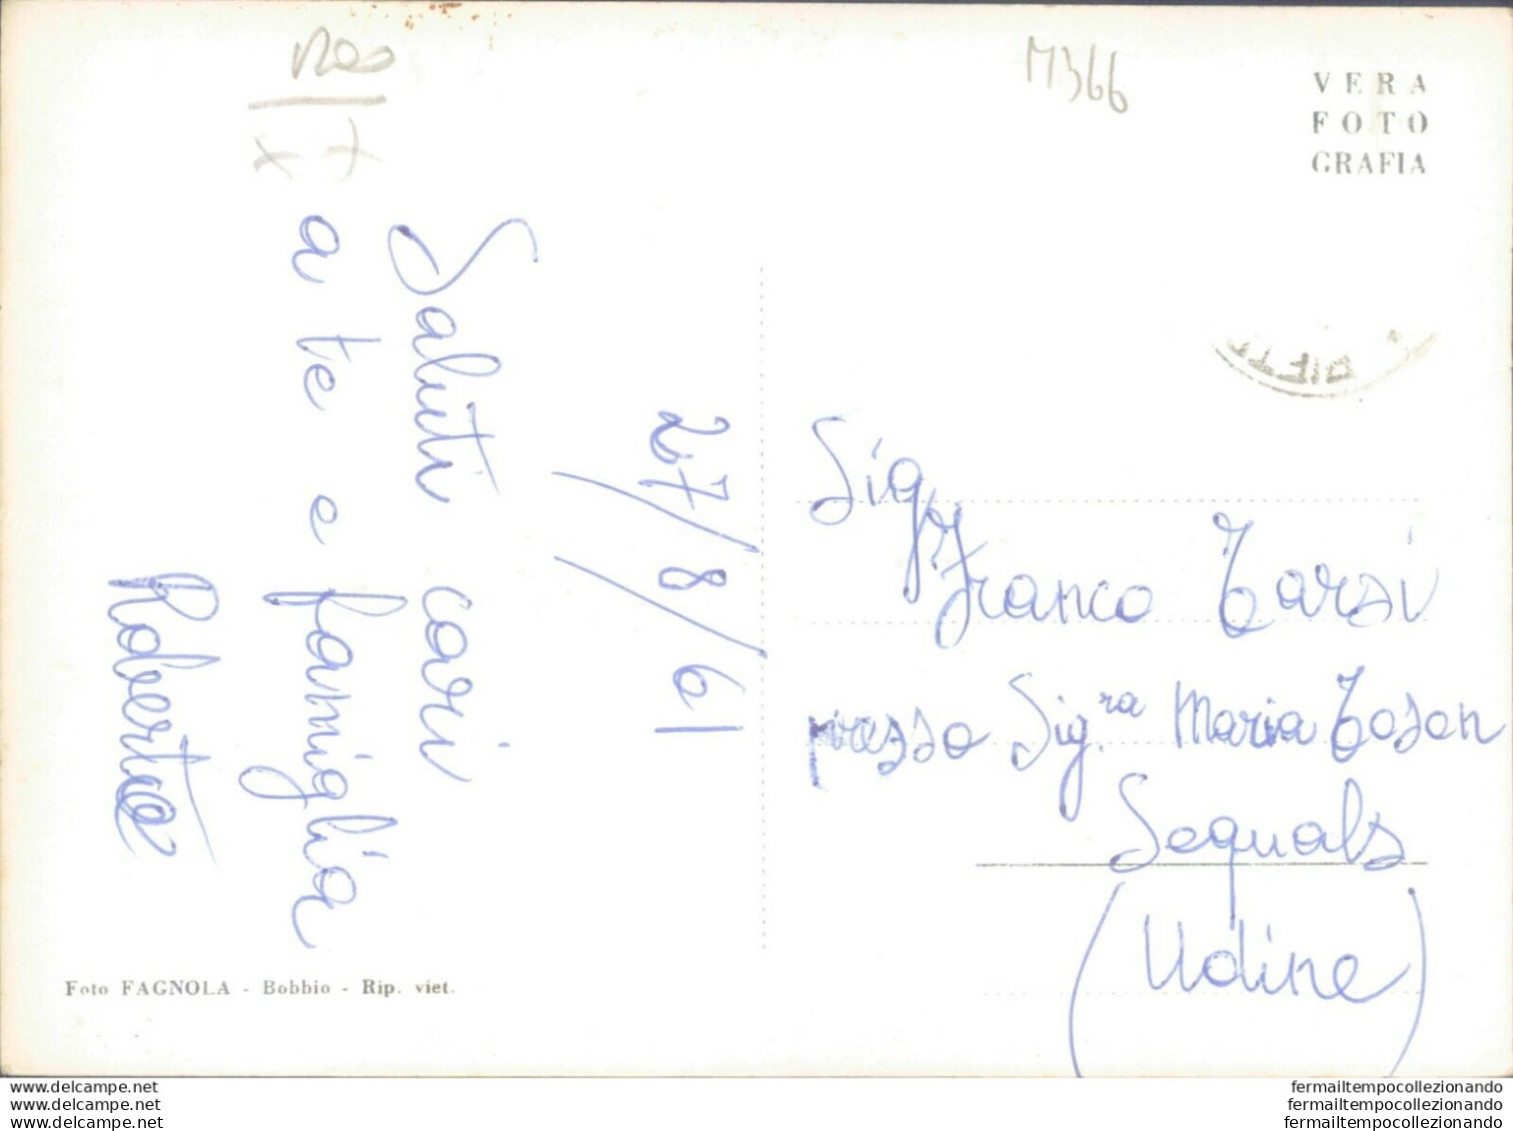 M366
VERA
FOTO
GRAFIA
27/8/61
Saluti cari
a te e famiglia
Sig Franco Tarsi
presso Sig.ra Maria Toson
Sequals
(Udine)
Foto FAGNOLA - Bobbio - Rip. viet.
www.delcampe.net
www.delcampe.net
www.delcampe.net
fermailtempocollezionando
fermailtempocollezionando
fermailtempocollezionando